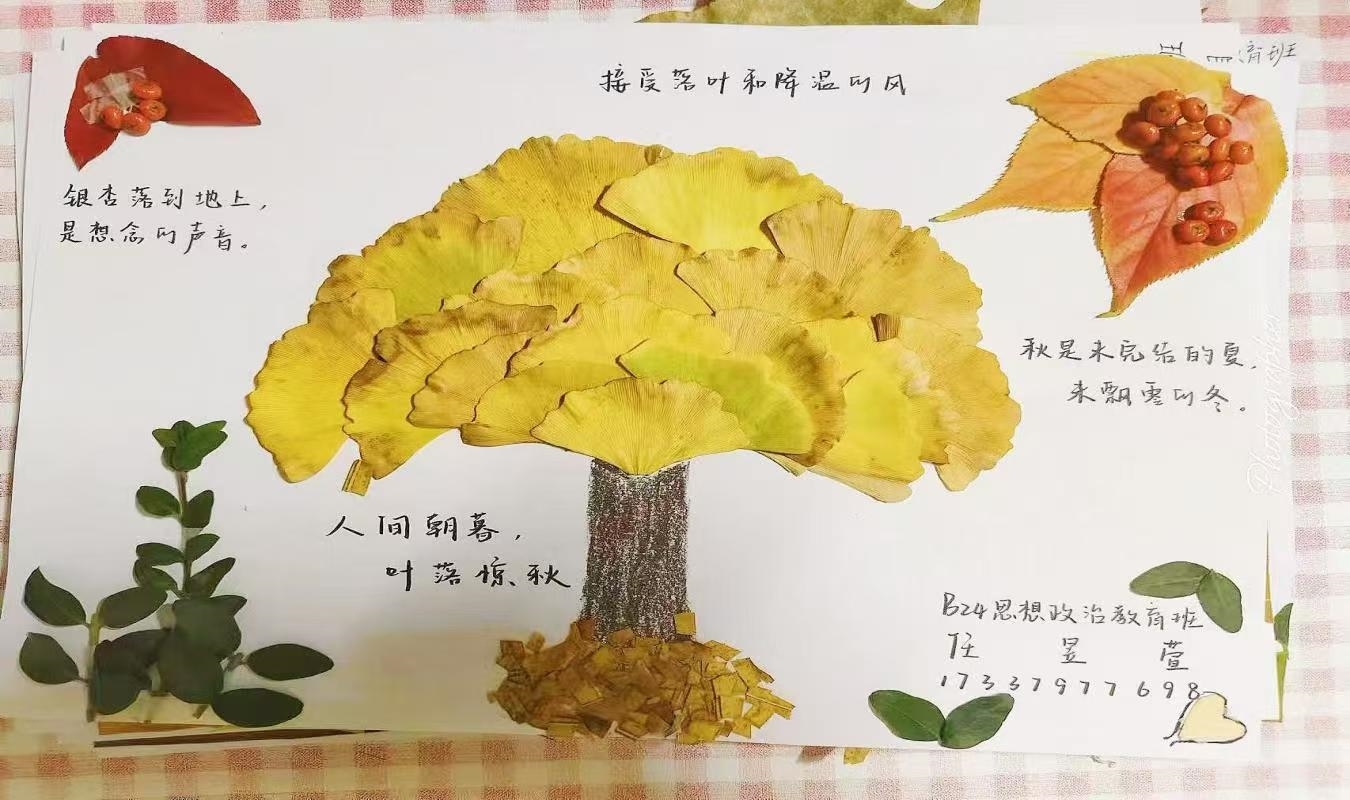 接受落叶和降温的风
育班
银杏落到地上，
是想念的声音。
秋是未完结的夏，
未飘雪的冬。
Photographer
人间朝暮，
叶落惊秋
B24思想政治教育班
任昱萱
17337977698